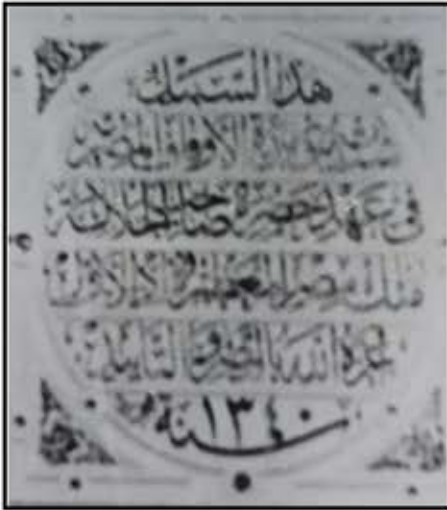 هذا السمك
وزارة الأوقاف المصرية
في عهد حضرة صاحب الجلالة
ملك مصر المعظم فؤاد الأول
الله بالنصر والتأييد
سنة ١٣٤٠